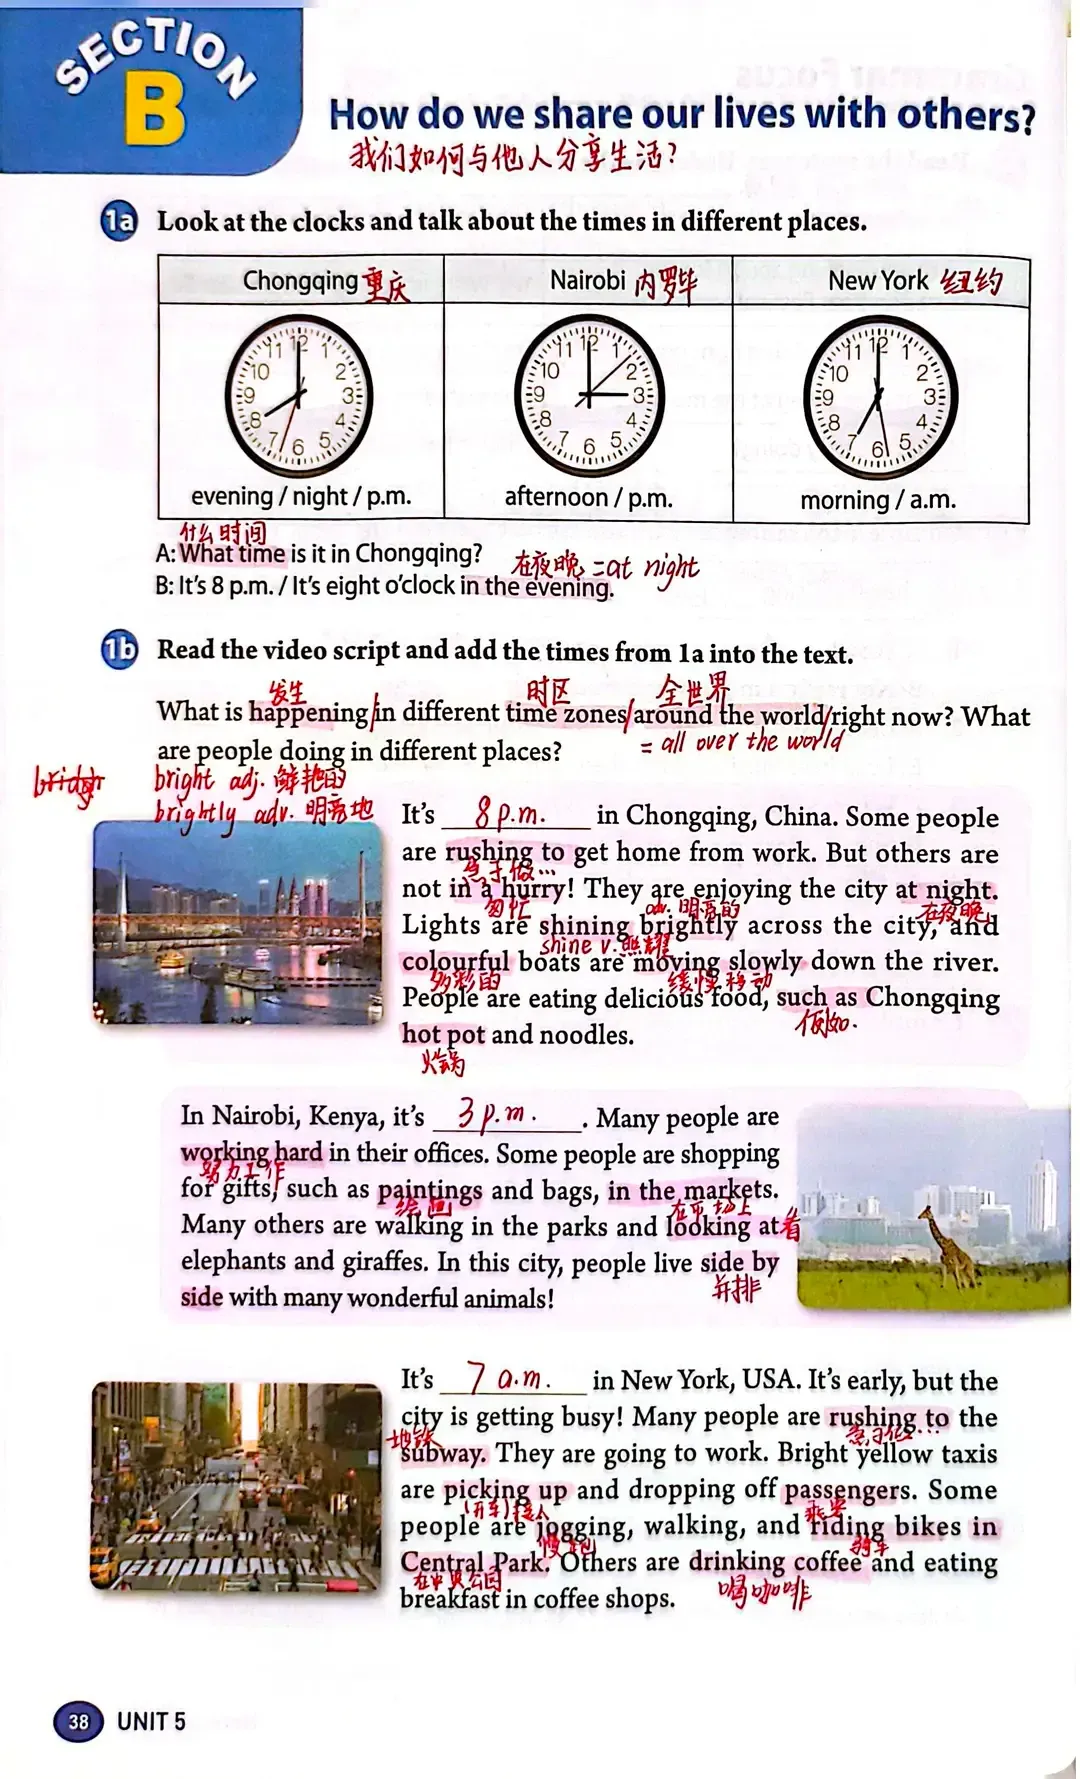 SECTION
B
How do we share our lives with others?
我们如何与他人分享生活?
1a Look at the clocks and talk about the times in different places.
Chongqing 重庆 Nairobi 内罗毕 New York 纽约
evening / night / p.m. afternoon / p.m. morning / a.m.
什么时间
A: What time is it in Chongqing?
在夜晚 = at night
B: It's 8 p.m. / It's eight o'clock in the evening.
1b Read the video script and add the times from 1a into the text.
发生 时区 全世界
What is happening/in different time zones/around the world/right now? What
= all over the world
are people doing in different places?
bright adj. 鲜艳的
brightly adv. 明亮地
It's 8 p.m. in Chongqing, China. Some people
are rushing to get home from work. But others are
急于做…
not in a hurry! They are enjoying the city at night.
匆忙 adv. 明亮的 在夜晚
Lights are shining brightly across the city, and
shine v. 照耀
colourful boats are moving slowly down the river.
多彩的 缓慢移动
People are eating delicious food, such as Chongqing
例如.
hot pot and noodles.
火锅
In Nairobi, Kenya, it's 3 p.m. . Many people are
working hard in their offices. Some people are shopping
努力工作
for gifts, such as paintings and bags, in the markets.
绘画 在市场上
Many others are walking in the parks and looking at 看
elephants and giraffes. In this city, people live side by
并排
side with many wonderful animals!
It's 7 a.m. in New York, USA. It's early, but the
city is getting busy! Many people are rushing to the
地铁 急于做…
subway. They are going to work. Bright yellow taxis
are picking up and dropping off passengers. Some
(开车)接人 乘客
people are jogging, walking, and riding bikes in
慢跑 骑车
Central Park. Others are drinking coffee and eating
在中央公园 喝咖啡
breakfast in coffee shops.
38 UNIT 5